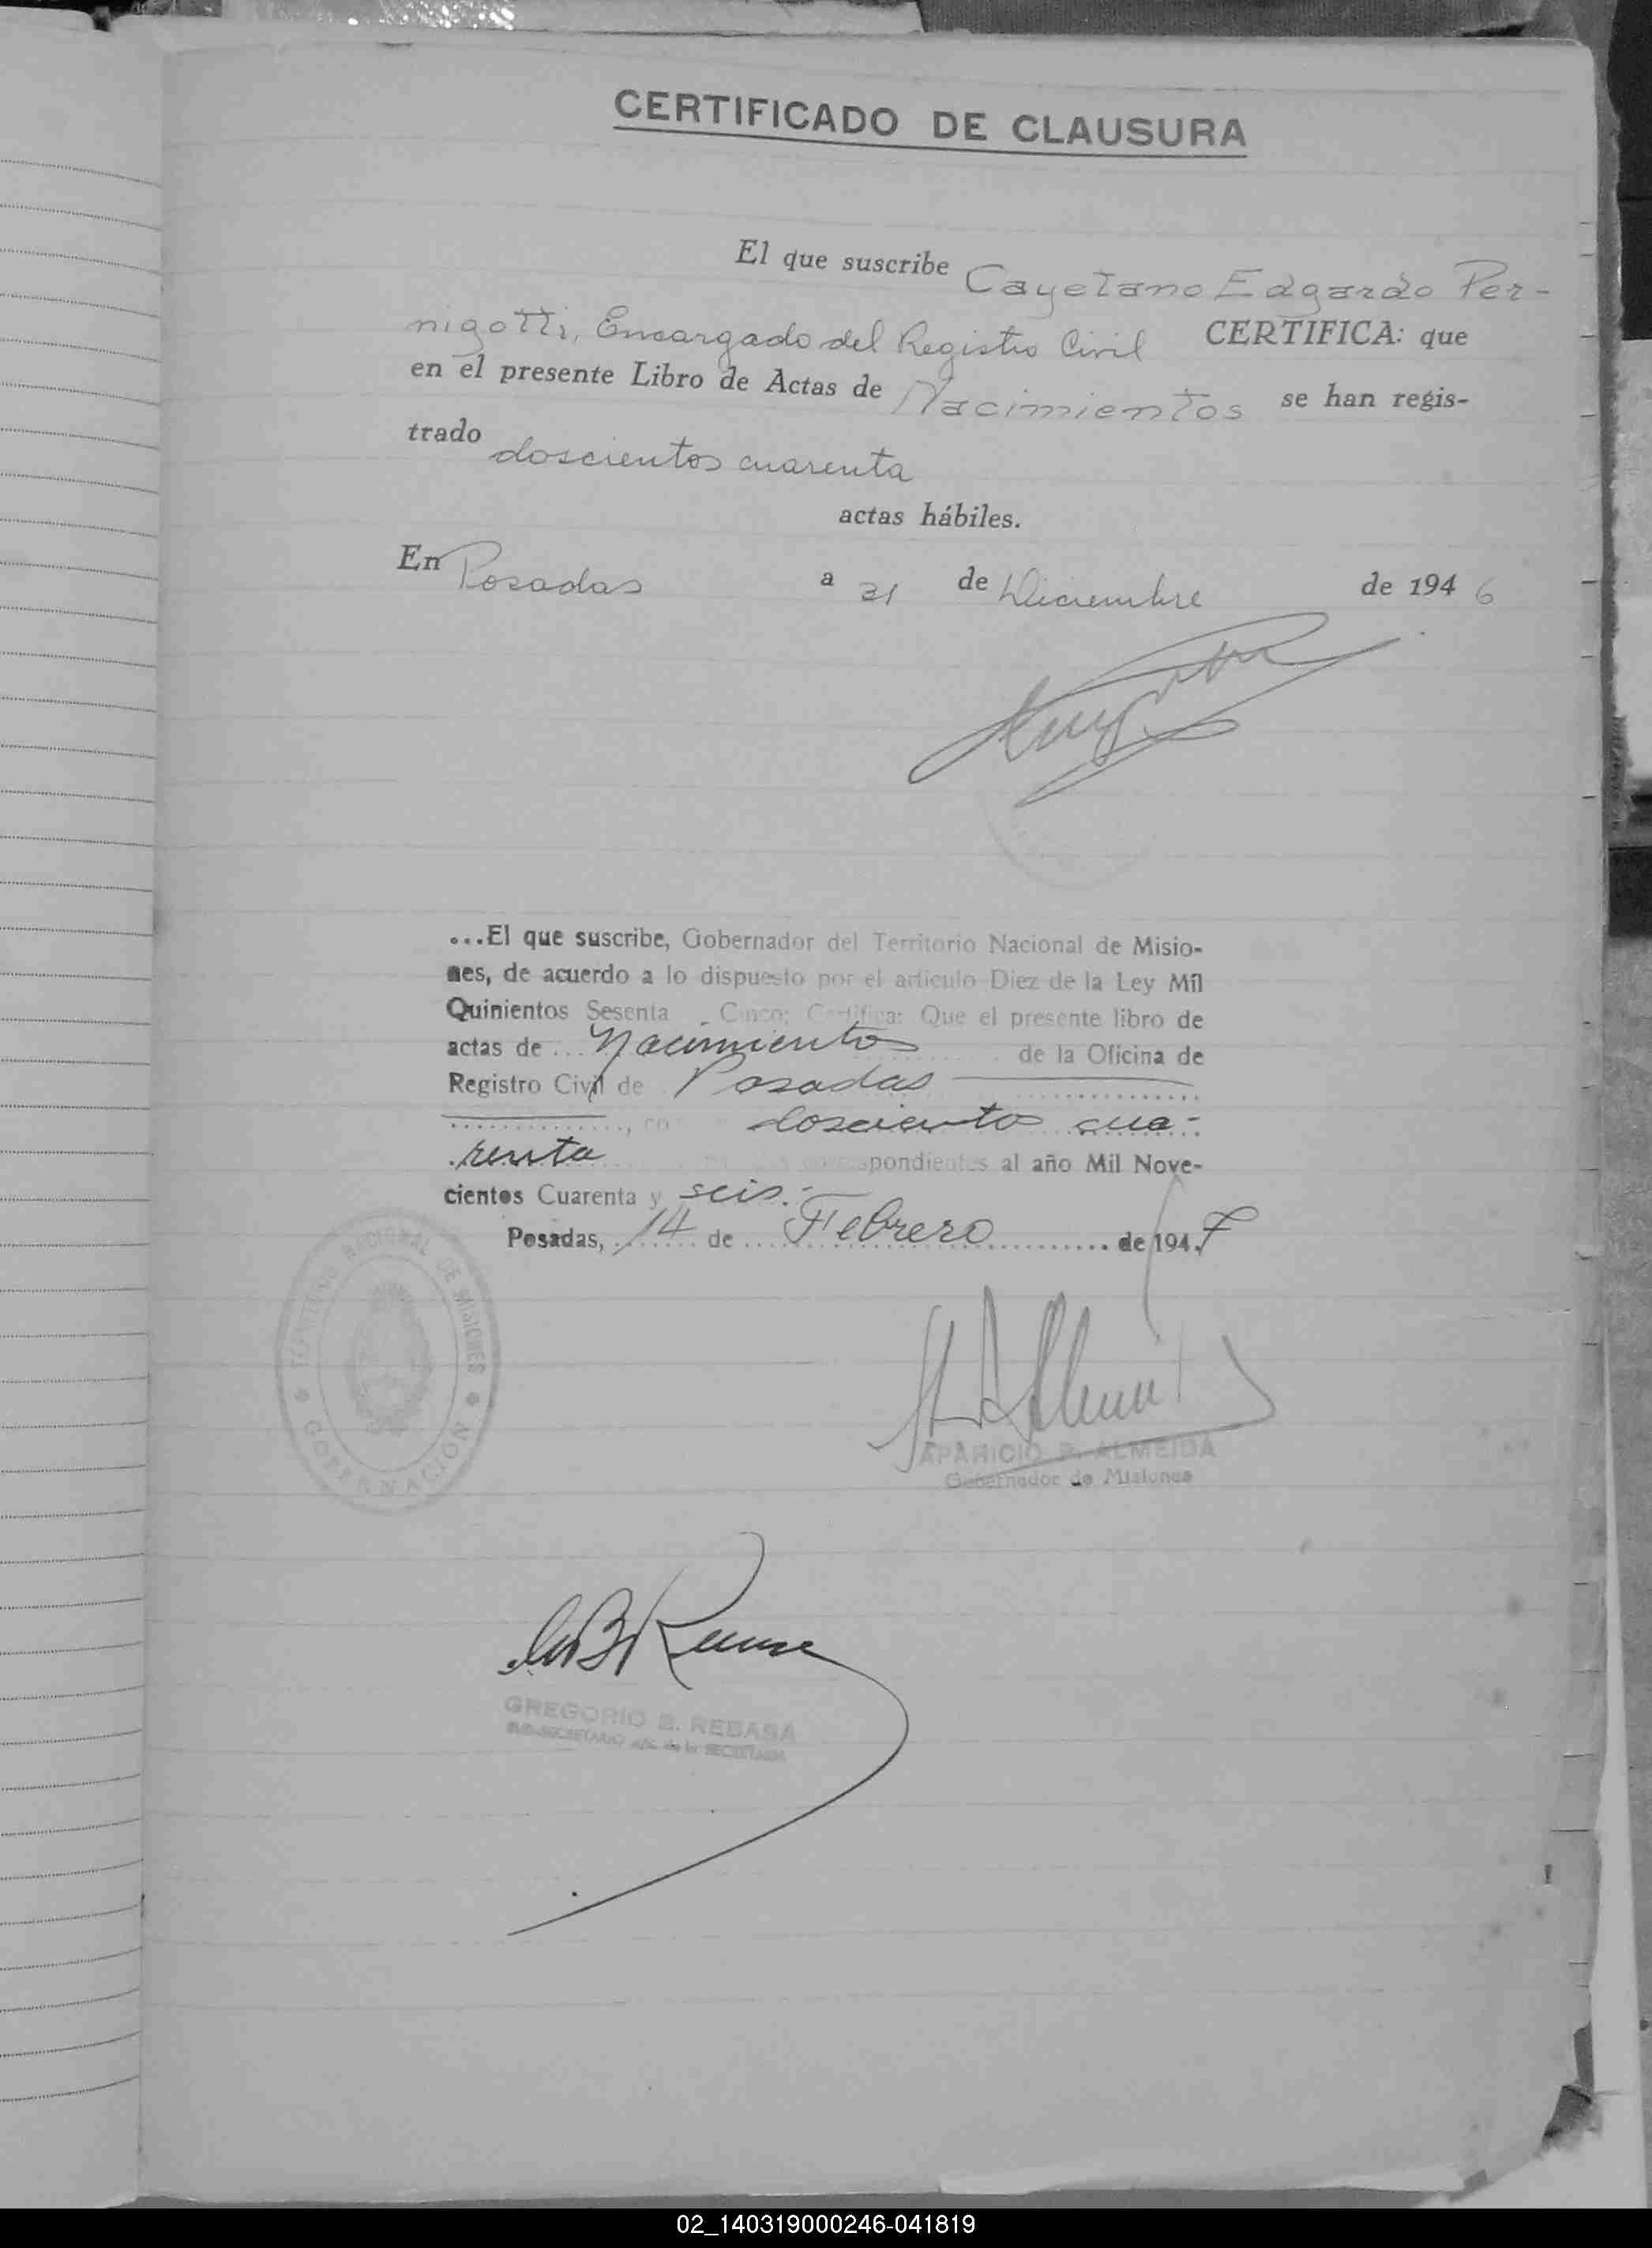 CERTIFICADO DE CLAUSURA
El que suscribe Cayetano Edgardo Per-
nigotti, Encargado del Registro Civil CERTIFICA: que
en el presente Libro de Actas de Nacimientos se han regis-
trado doscientos cuarenta
actas hábiles.
En Posadas a 31 de Diciembre de 1946
...El que suscribe, Gobernador del Territorio Nacional de Misio-
nes, de acuerdo a lo dispuesto por el artículo Diez de la Ley Mil
Quinientos Sesenta Cinco; Certifica: Que el presente libro de
actas de Nacimientos de la Oficina de
Registro Civil de Posadas
doscientos cua-
renta correspondientes al año Mil Nove-
cientos Cuarenta y seis.-
Posadas, 14 de Febrero de 1947
TERRITORIO NACIONAL DE MISIONES
GOBERNACIÓN
APARICIO B. ALMEIDA
Gobernador de Misiones
GREGORIO B. REBASA
SUB-SECRETARIO a/c. de la SECRETARIA
02_140319000246-041819